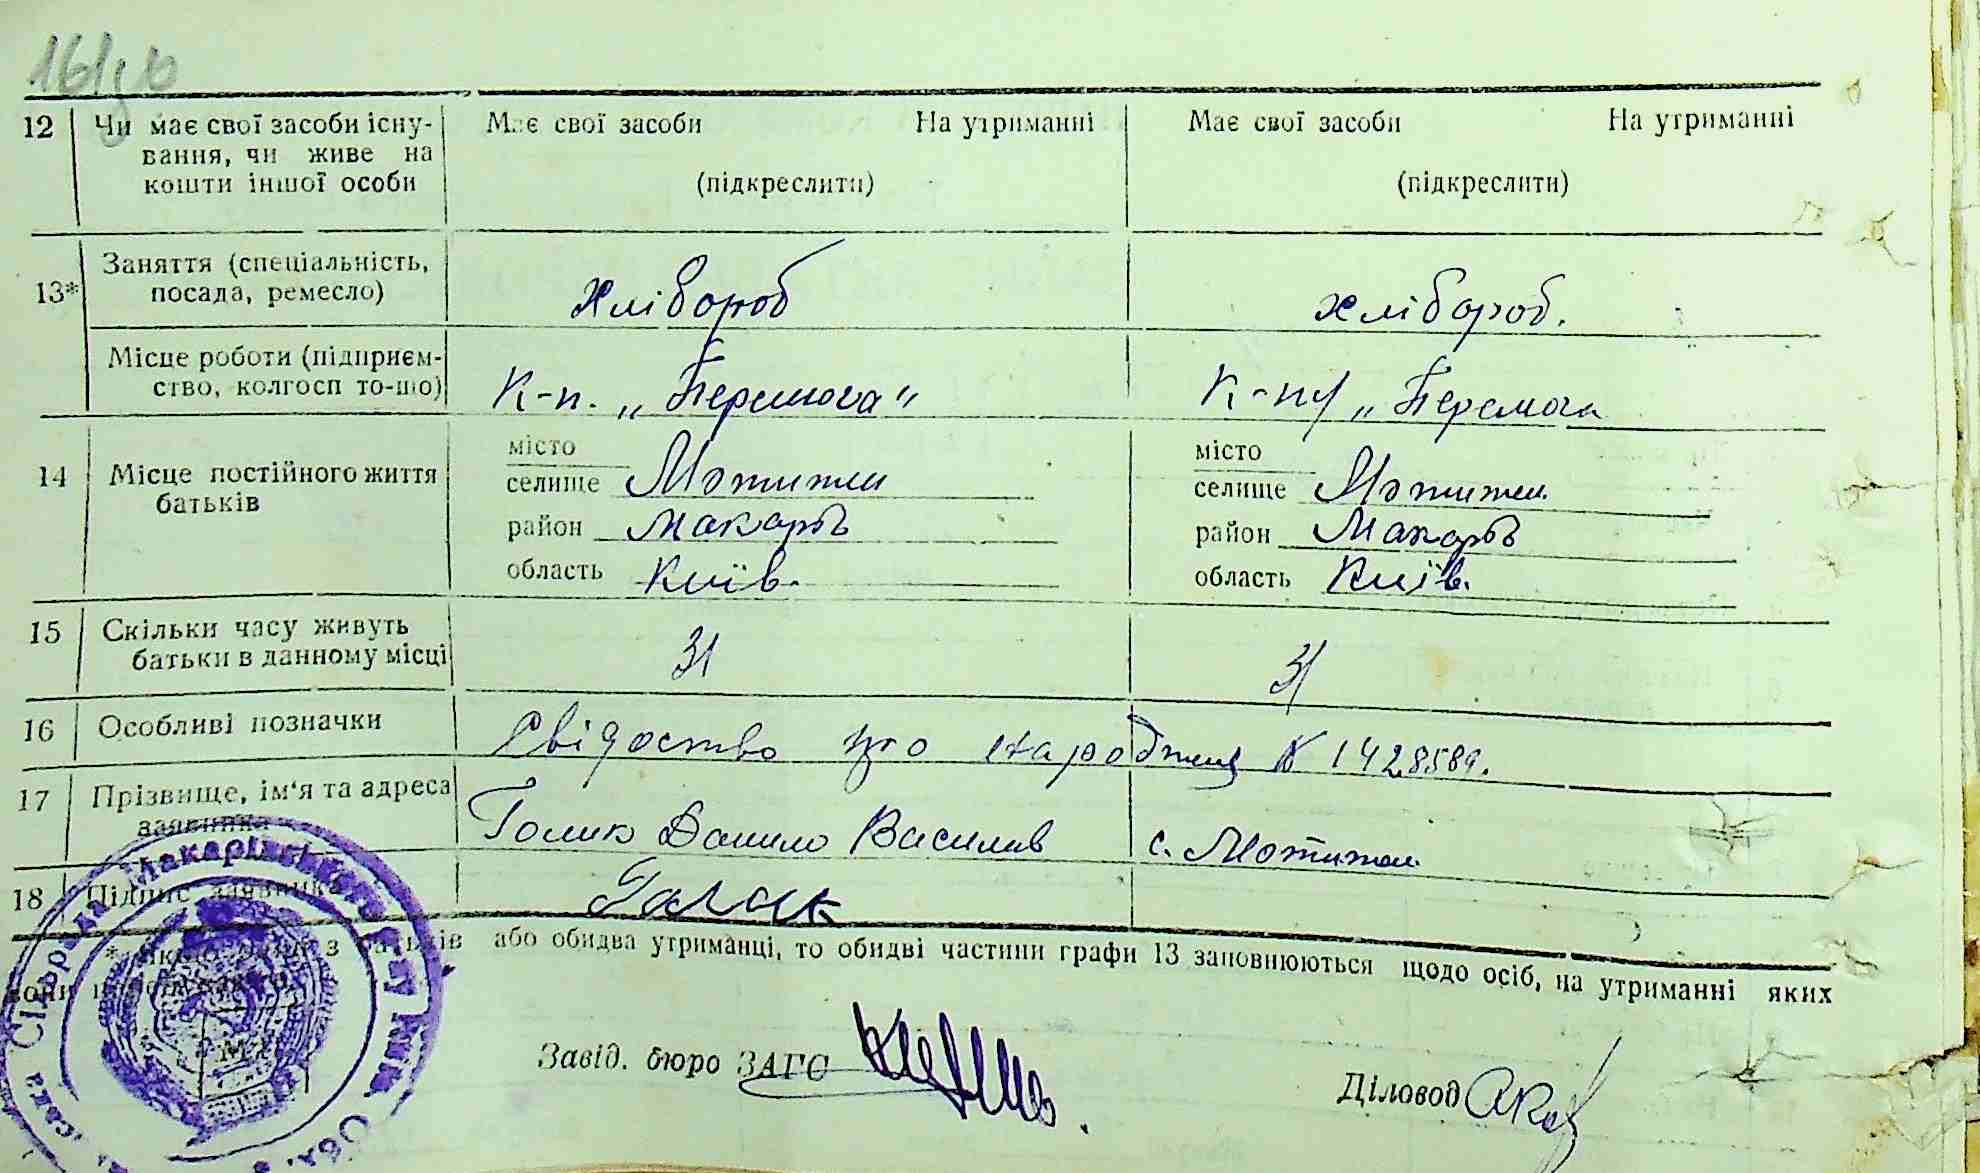 12 Чи має свої засоби існу- Має свої засоби На утриманні Має свої засоби На утриманні
вання, чи живе на
кошти іншої особи (підкреслити) (підкреслити)
13* Заняття (спеціальність,
посада, ремесло) Хлібороб хлібороб.
Місце роботи (підприєм-
ство, колгосп то-що) К-п. „Перемога“ К-п „Перемога
14 Місце постійного життя
батьків
місто місто
селище Мотижин селище Мотижин.
район Макарів район Макарів
область Київ. область Київ.
15 Скільки часу живуть
батьки в данному місці 31 31
16 Особливі позначки Свідоство про народження № 1428589.
17 Прізвище, ім'я та адреса
заявника Голик Данило Василів с. Мотижин.
18 Підпис заявника Галик
* Якщо з батьків або обидва утриманці, то обидві частини графи 13 заповнюються щодо осіб, на утриманні яких
вони
Сільрада Макарівського р-ну Київ. Обл.
М.П.
Завід. бюро ЗАГС
Діловод